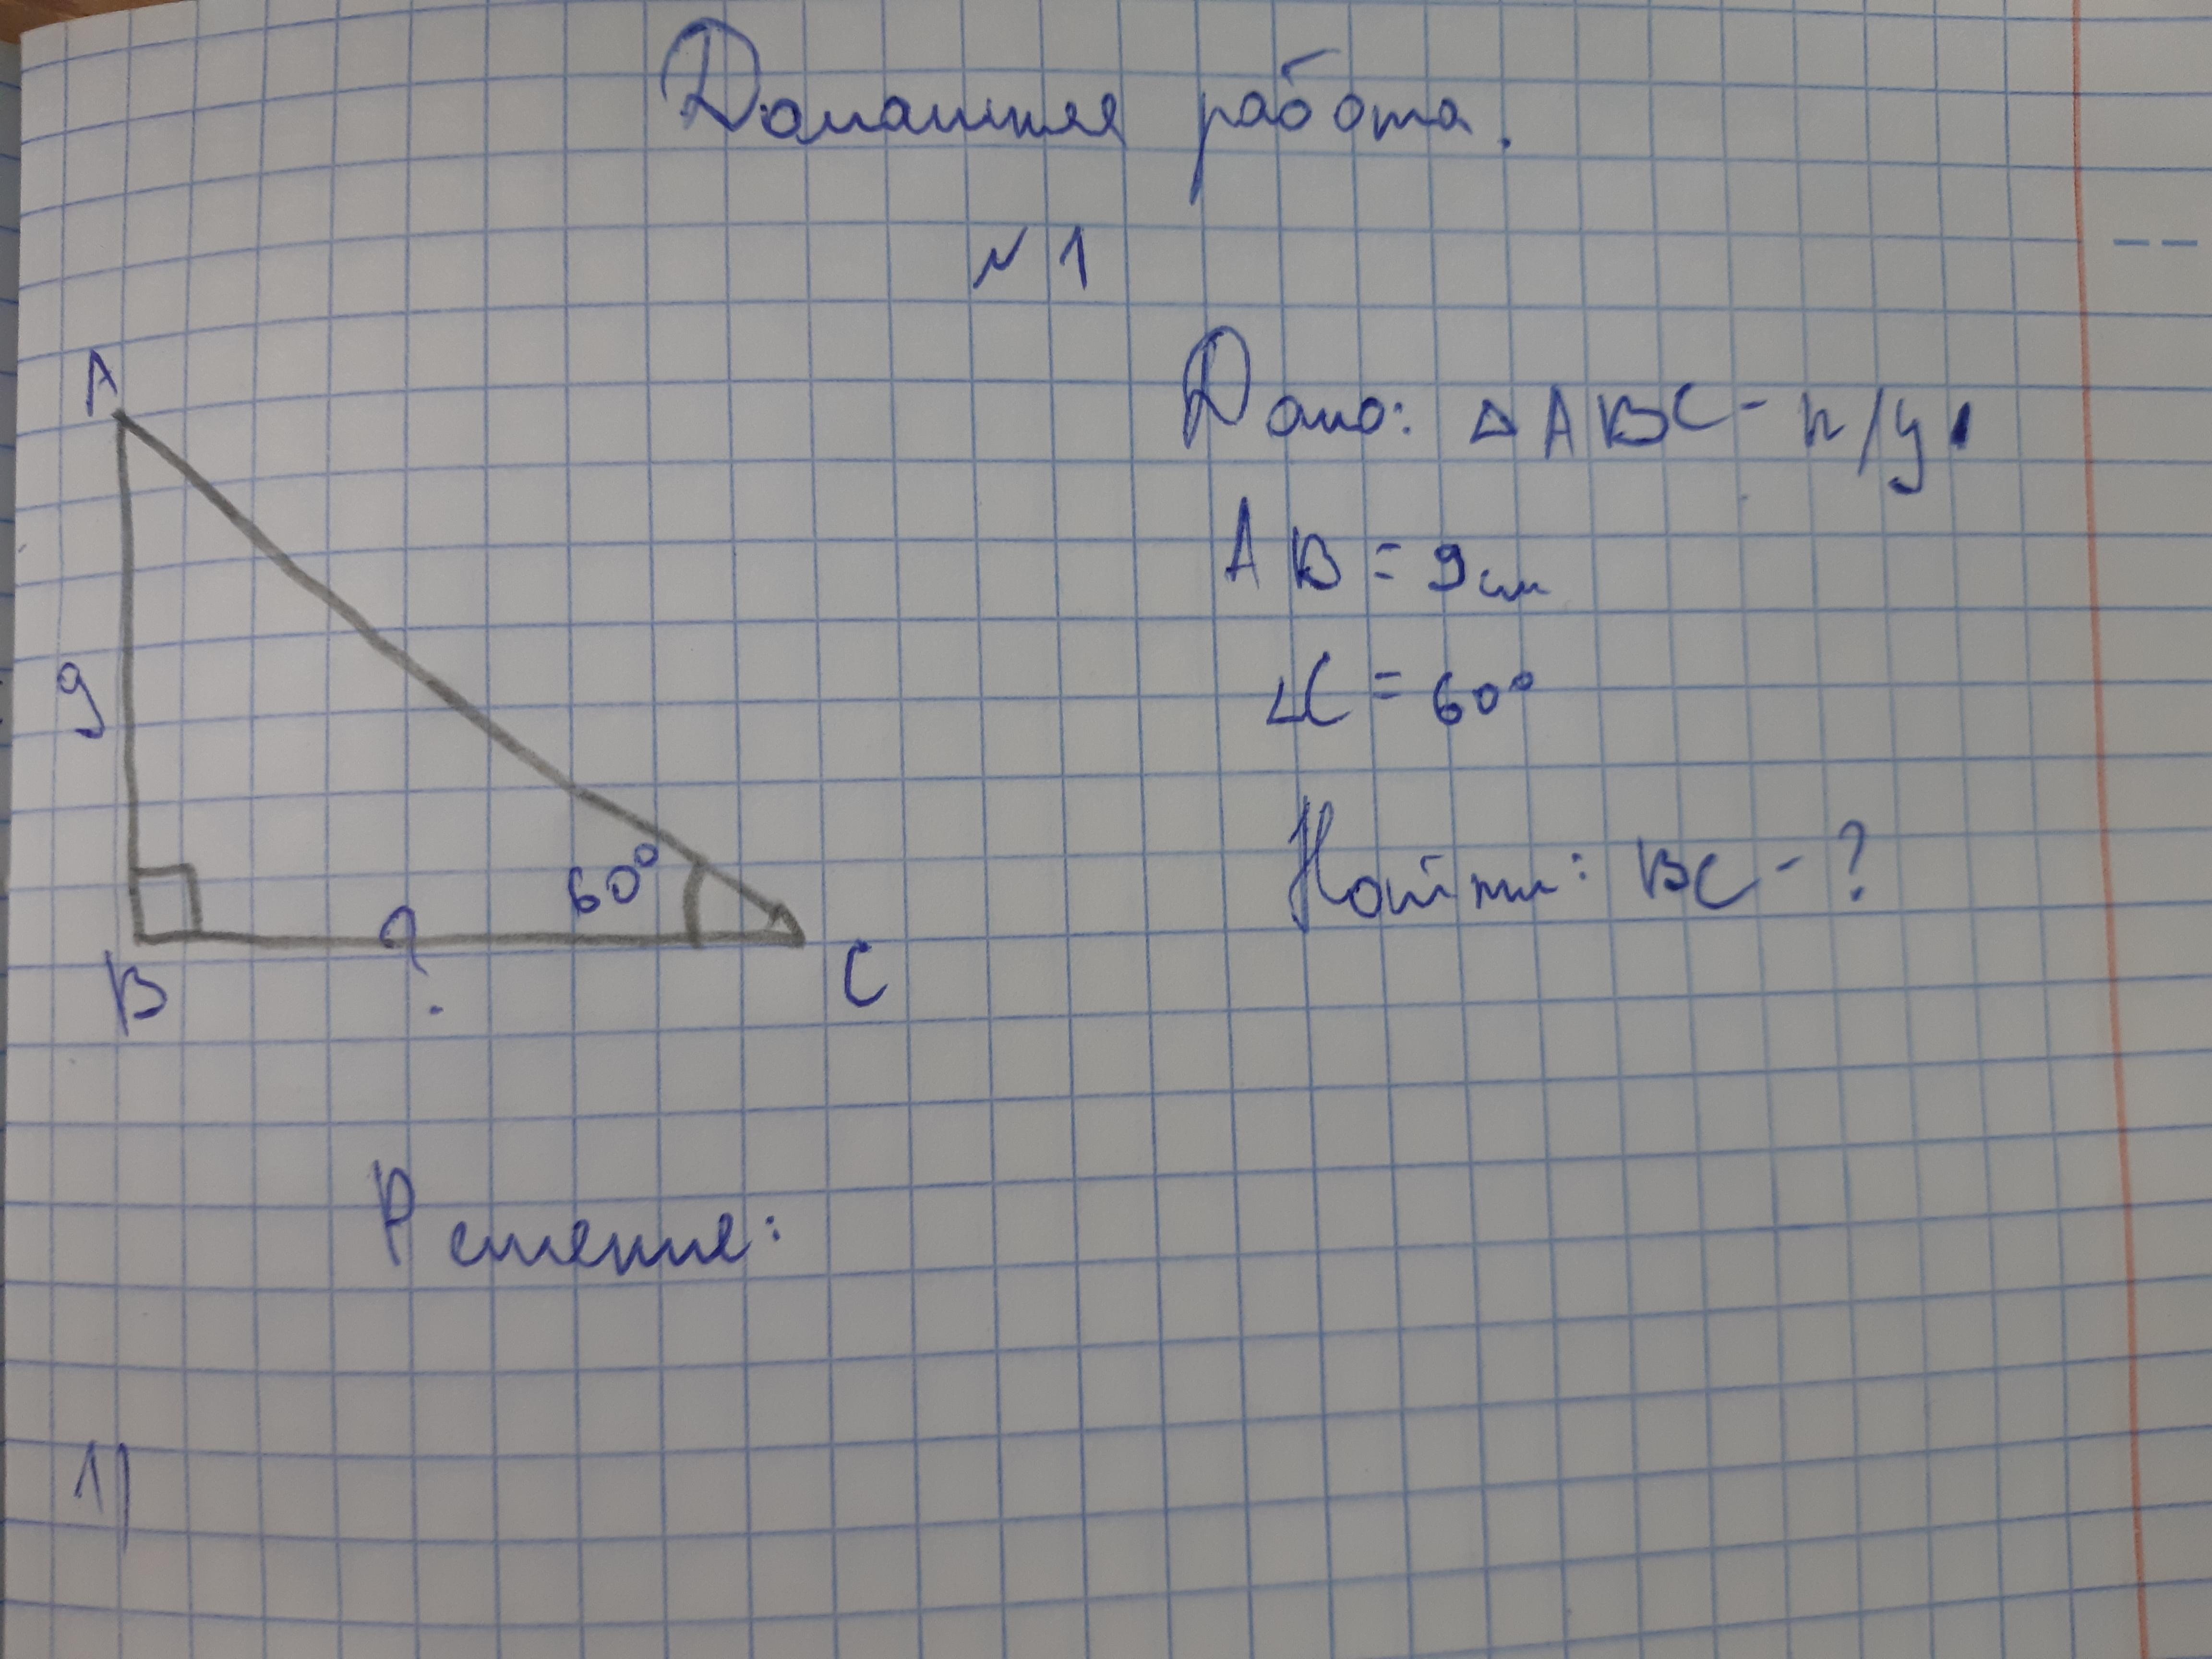 Домашняя работа.
№ 1
A
Дано: △ABC - п/у
AB = 9см
9
∠C = 60°
60°
Найти: BC - ?
?
B
C
Решение:
1)